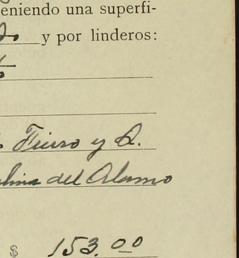 eniendo una superfi-
y por linderos:
Fierro y A.
del Alamo
$ 153.00